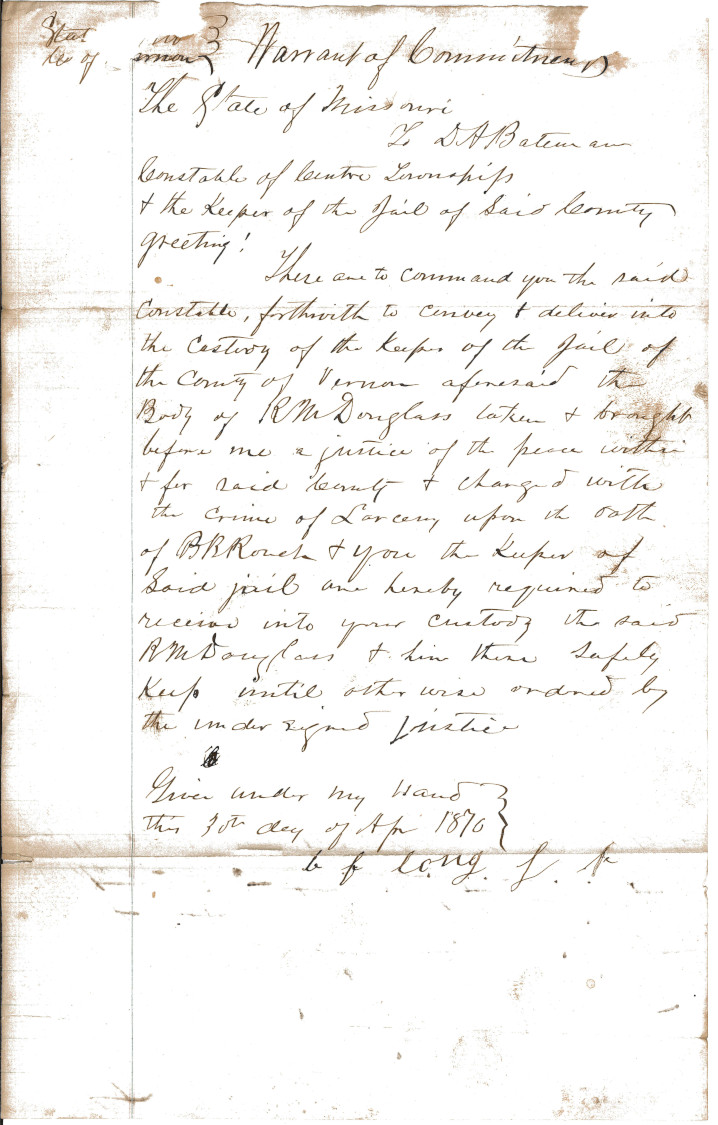 Stat
Co of ernon } Warrant of Commitment
The State of Missouri
To D A Bateman
Constable of Centre Township
& the Keeper of the Jail of Said County
greeting!
These are to command you the said
Constable, forthwith to convey & deliver into
the Custody of the Keeper of the Jail of
the County of Vernon aforesaid the
Body of R M Douglass taken & brought
before me a justice of the peace within
& for said County & charged with
the crime of Larceny upon th oath
of B R Rouch & you the Keeper of
Said jail are hereby required to
receive into your custody the said
R M Douglass & him there Safely
Keep until other wise ordred by
the under signed justice
Given under my Hand
this 30th day of Apr 1870
Long J P